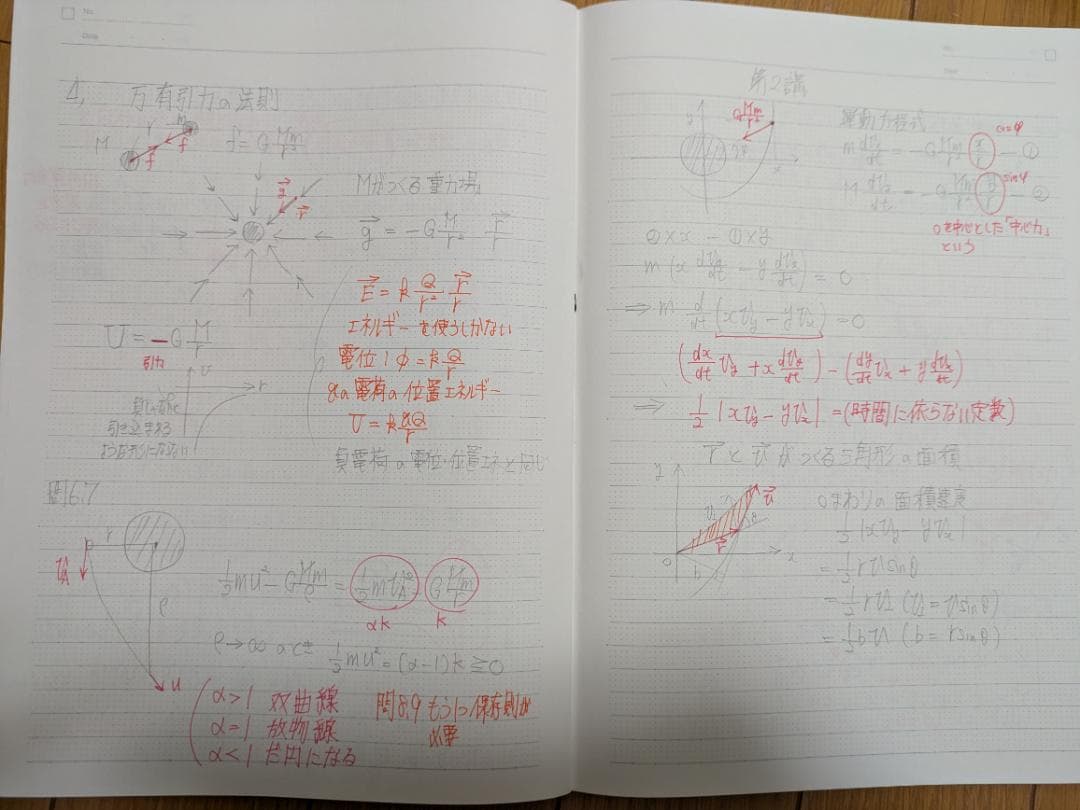 No.
Date
1, 万有引力の法則
M
r
m
f
f
f = G Mm/r²
Mがつくる重力場
g
r
g = -G M/r² r/r
E = k Q/r² r/r
エネルギーを使うしかない
電位:φ = k Q/r
qの電荷の位置エネルギー
U = k qQ/r
負電荷の電位・位置エネと同じ
U = -G M/r
引力
U
r
引き込まれる
ような形になる
問6.7
r
v_A
ρ
u
1/2 mu² - G Mm/ρ = 1/2 mv_A² - G Mm/r
αk
k
ρ→∞のとき 1/2 mu² = (α-1)k ≧ 0
α>1 双曲線
α=1 放物線
α<1 だ円になる
問8.9 もう1つ保存則が
必要
第2講
G Mm/r²
y
x
運動方程式
m dv_x/dt = -G Mm/r² x/r ―①
cosφ
M dv_y/dt = -G Mm/r² y/r ―②
sinφ
0を中心とした「中心力」
という
②×x - ①×y
m(x dv_y/dt - y dv_x/dt) = 0
⇒ m d/dt (xv_y - yv_x) = 0
(dx/dt v_y + x dv_y/dt) - (dy/dt v_x + y dv_x/dt)
⇒ 1/2 |xv_y - yv_x| = (時間に依らない定数)
rとvがつくる三角形の面積
y
v
r
θ
O
b
x
0まわりの面積速度
1/2 |xv_y - yv_x|
= 1/2 rv sinθ
= 1/2 rv⊥ (v⊥ = v sinθ)
= 1/2 bv (b = r sinθ)